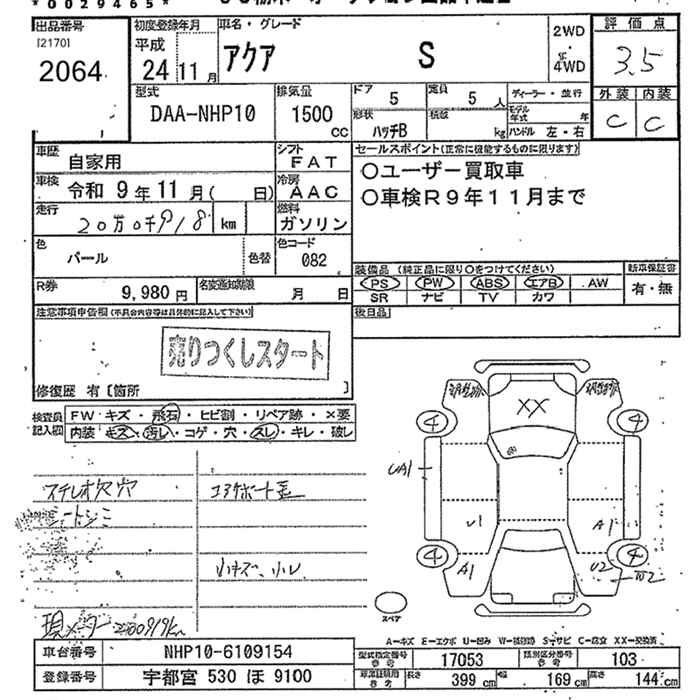 *0029465*
出品番号
[2170]
2064
初度登録年月
平成
24 11月
車名・グレード
アクア S
2WD
4WD
評価点
3.5
外装 内装
C C
型式
DAA-NHP10
排気量
1500
CC
ドア
5
定員
5人
形状
ハッチB
積載
kg
ディーラー・並行
モデル年式 年
ハンドル 左・右
車歴
自家用
シフト
FAT
車検 令和 9年11月( 日)
冷房
AAC
走行
20万0千918 km
燃料
ガソリン
色
パール
色替
色コード
082
R券
9,980円
名変通知期限
月 日
セールスポイント(正常に機能するものに限ります)
○ユーザー買取車
○車検R9年11月まで
装備品 (純正品に限り○をつけてください)
PS PW ABS エアB AW
SR ナビ TV カワ
新車保証書
有・無
後日品
注意事項申告欄(不具合内容等は具体的に記入して下さい)
売りつくしスタート
修復歴 有 [箇所 ]
検査員記入欄
FW キズ・飛石・ヒビ割・リペア跡・×要
内装 キズ・汚レ・コゲ・穴・スレ・キレ・破レ
ステレオ欠穴
シートシミ
小キズ、小レ
現メーター200919km
XX
4
4
UA1
U1
A1
4
4
A1
U2
W2
スペア
A―キズ E―エクボ U―凹み W―補修跡 S―サビ C―腐食 XX―交換済
車台番号
NHP10-6109154
登録番号
宇都宮 530 ほ 9100
型式指定番号
17053
類別区分番号
103
長さ 399 cm
幅 169 cm
高さ 144 cm